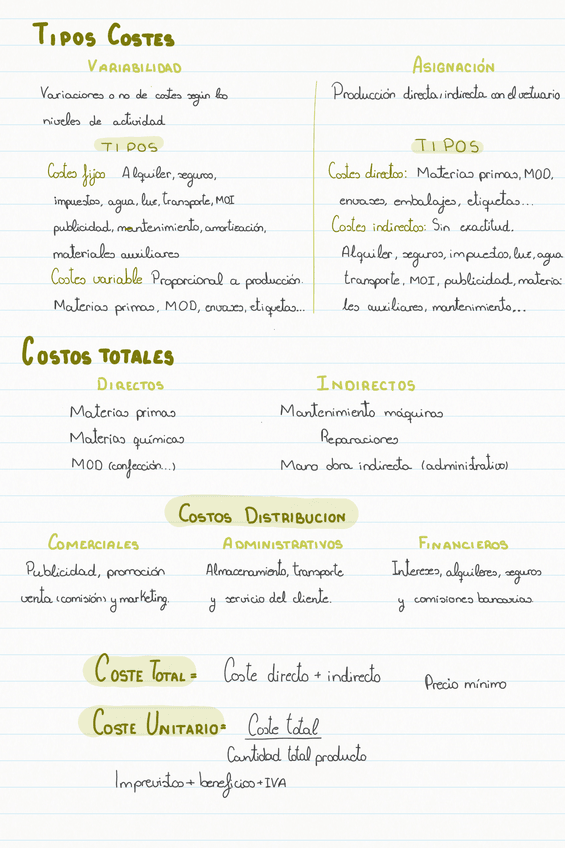 TIPOS COSTES
VARIABILIDAD
Variaciones o no de costes según los
niveles de actividad
TIPOS
Costes fijos Alquiler, seguros,
impuestos, agua, luz, transporte, MOI
publicidad, mantenimiento, amortización,
materiales auxiliares
Costes variable Proporcional a producción.
Materias primas, MOD, envases, etiquetas...
ASIGNACIÓN
Producción directa, indirecta con el vestuario
TIPOS
Costes directos: Materias primas, MOD,
envases, embalajes, etiquetas...
Costes indirectos: Sin exactitud.
Alquiler, seguros, impuestos, luz, agua
transporte, MOI, publicidad, materia:
les auxiliares, mantenimiento...
COSTOS TOTALES
DIRECTOS
Materias primas
Materias químicas
MOD (confección...)
INDIRECTOS
Mantenimiento máquinas
Reparaciones
Mano obra indirecta (administrativo)
COSTOS DISTRIBUCION
COMERCIALES
Publicidad, promoción
venta (comisión) y marketing.
ADMINISTRATIVOS
Almacenamiento, transporte
y servicio del cliente.
FINANCIEROS
Intereses, alquileres, seguros
y comisiones bancarias.
COSTE TOTAL = Coste directo + indirecto
Precio mínimo
COSTE UNITARIO = Coste total
Cantidad total producto
Imprevistos + beneficios + IVA